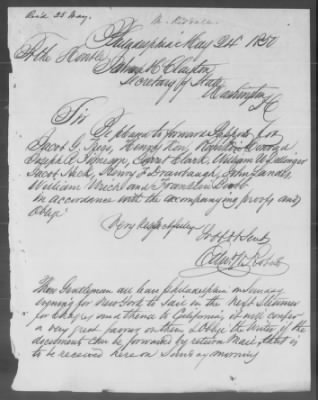 Recd 25 May.
Philadelphia May 24 1850
To the Honble
John M Clayton
Secretary of State
Washington
Sir
Be pleased to forward Passports for
Jacob G. Henry
Joseph C. Clark, William W.
Jacob Henry John Landis
William and Franklin
In accordance with the accompanying proofs and
Oblige
Very Respectfully
Your Obt Sevt
These Gentlemen all leave Philadelphia on Sunday
evening for New York to Sail in the next Steamer
for Chagres and thence to California, it will confer
a very great favour on them & Oblige the writer if the
document can be forwarded by return Mail, that is
to be received here on Sunday morning